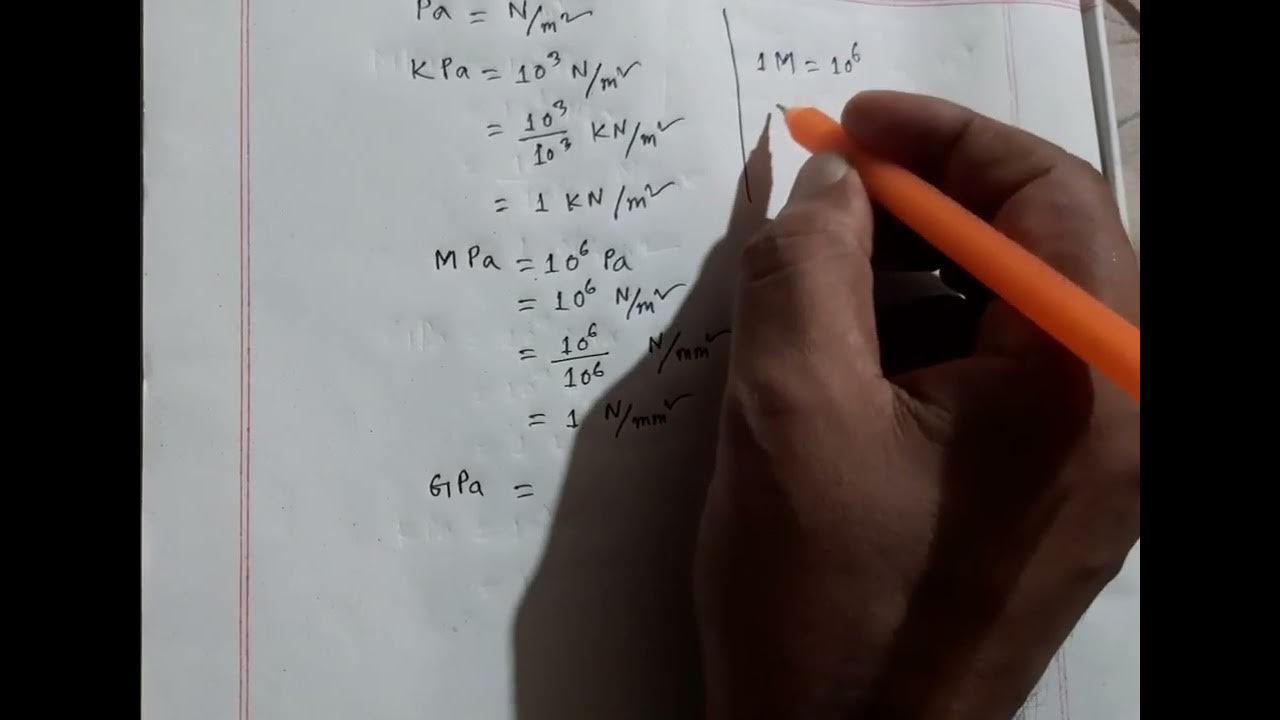 Pa = N/m²
KPa = 10³ N/m²
= 10³/10³ KN/m²
= 1 KN/m²
MPa = 10⁶ Pa
= 10⁶ N/m²
= 10⁶/10⁶ N/mm²
= 1 N/mm²
GPa =
1 M = 10⁶